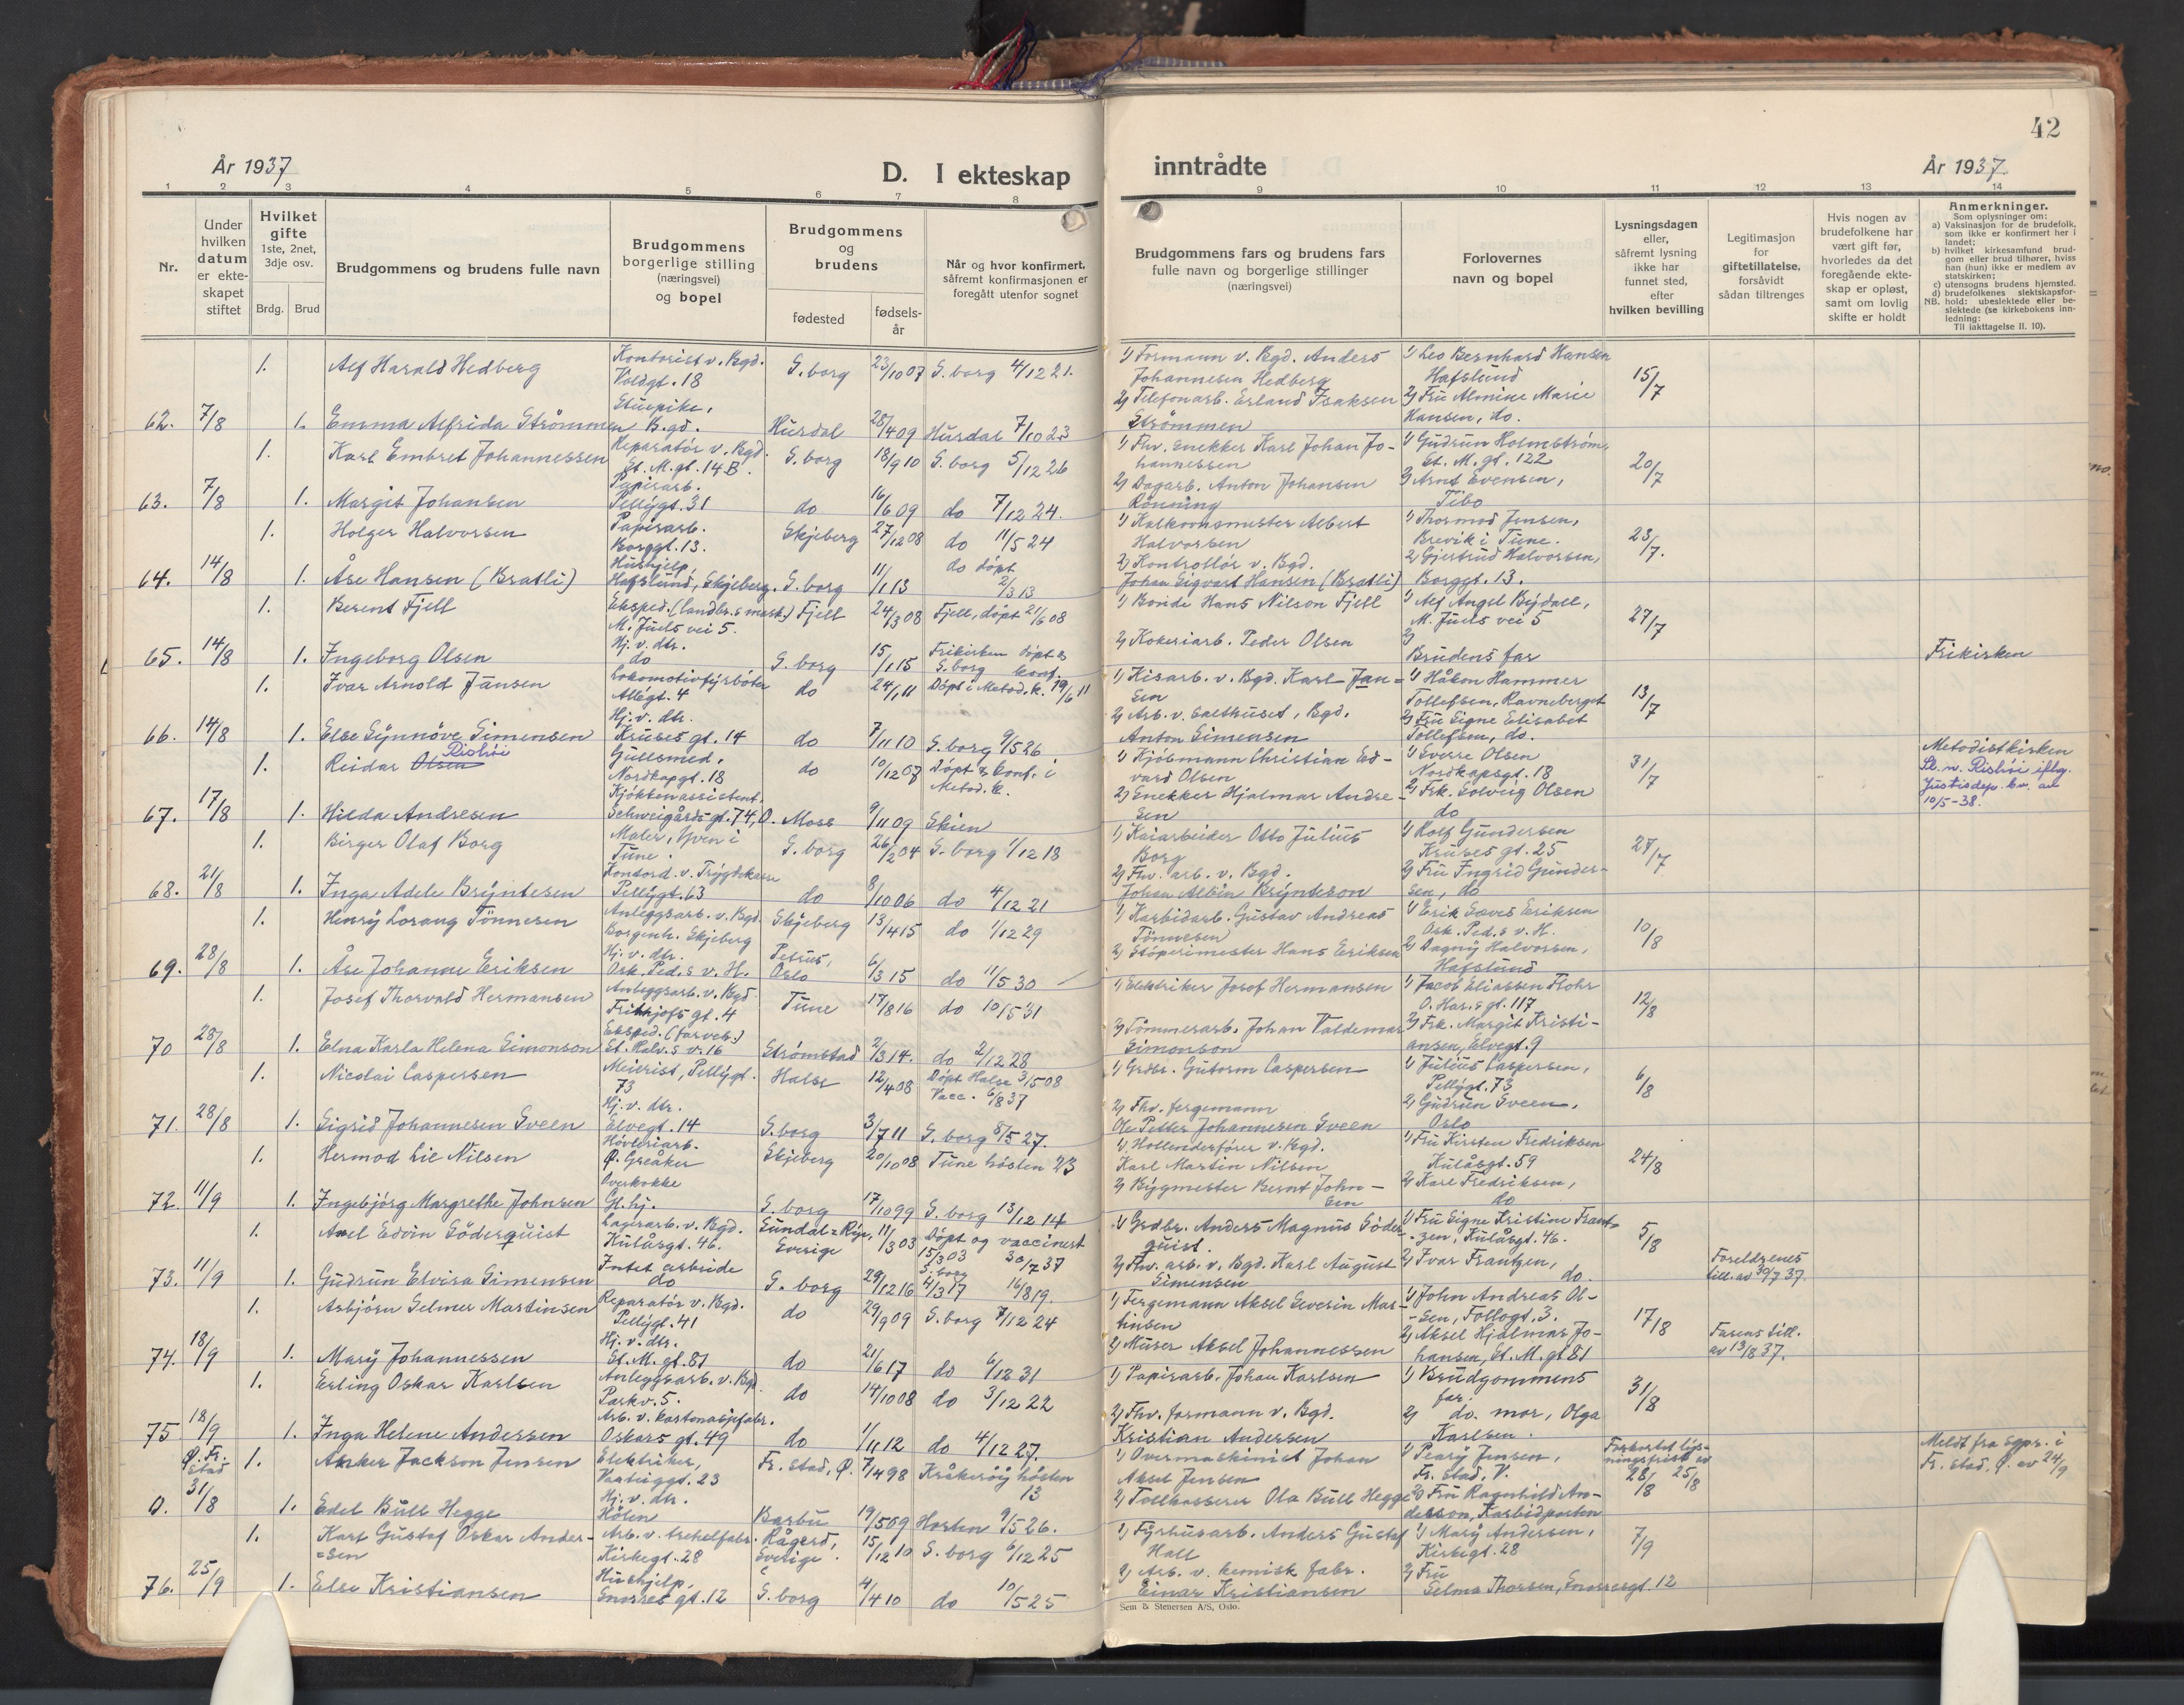 42
År 1937
D. I ekteskap
inntrådte
År 1937.
1 2 3 4 5 6 7 8 9 10 11 12 13 14
Nr.
Under hvilken datum er ekteskapet stiftet
Hvilket gifte
1ste, 2net, 3dje osv.
Brdg. Brud
Brudgommens og brudens fulle navn
Brudgommens borgerlige stilling (næringsvei) og bopel
Brudgommens og brudens
fødested
fødselsår
Når og hvor konfirmert, såfremt konfirmasjonen er foregått utenfor sognet
Brudgommens fars og brudens fars fulle navn og borgerlige stillinger (næringsvei)
Forlovernes navn og bopel
Lysningsdagen eller, såfremt lysning ikke har funnet sted, efter hvilken bevilling
Legitimasjon for giftetillatelse, forsåvidt sådan tiltrenges
Hvis nogen av brudefolkene har vært gift før, hvorledes da det foregående ekteskap er opløst, samt om lovlig skifte er holdt
Anmerkninger.
Som oplysninger om:
a) Vaksinasjon for de brudefolk, som ikke er konfirmert her i landet;
b) hvilket kirkesamfund brudgom eller brud tilhører, hviss han (hun) ikke er medlem av statskirken;
c) utensogns brudens hjemsted.
d) brudefolkenes slektskapsforhold: ubeslektede eller beslektede (se kirkebokens innledning:
NB.
Til iakttagelse II. 10).
1. Alf Harald Hedberg Kontorist v. Bgd. Voldgt. 18 S.borg 23/10 07 S.borg 4/12 21. 1) Formann v. Bgd. Anders Johannesen Hedberg 1) Leo Bernhard Hansen Hafslund 15/7
62. 7/8 1. Emma Alfrida Strømmen Stuepike, B.gd. Hurdal 28/4 09 Hurdal 7/10 23 2) Telefonarb. Erland Isaksen Strømmen 2) Fru Almine Marie Hansen, do.
1. Karl Embret Johannessen Reparatør v. Bgd. St. M. gt. 14 B. S.borg 18/9 10 S.borg 5/12 26 1) Fhv. snekker Karl Johan Johannessen 1) Gudrun Holmstrøm, St. M. gt. 122 20/7
63. 7/8 1. Margit Johansen Papirarb. Pellygt. 31 do 16/6 09 do 7/12 24. 2) Dagarb. Anton Johansen Rønning 2) Arnt Evensen, Tibo
1. Holger Halvorsen Papirarb. Borggt. 13. Skjeberg 27/12 08 do 11/5 24 1) Albert Halvorsen 1) Thormod Jensen, Brevik i Tune. 23/7.
64. 14/8 1. Åse Hansen (Bratli) Hushjelp, Hafslund, Skjeberg. S.borg 11/1 13 do døpt 2/3 13 2) Kontrollør v. Bgd. Johan Sigvart Hansen (Bratli) 2) Gjertrud Halvorsen, Borggt. 13.
1. Berent Fjell Eksped. (landbr.s mask.) M. Juels vei 5. Fjell 24/3 08 Fjell, døpt 21/6 08 1) Bonde Hans Nilson Fjell 1) Alf Angel Bydall, M. Juels vei 5 27/7
65. 14/8 1. Ingeborg Olsen Hj. v. dtr. do S.borg 15/1 15 Frikirken døpt & S.borg konf. 2) Kokeriarb. Peder Olsen 2) Brudens far Frikirken
1. Ivar Arnold Jansen Lokomotivfyrbøter Allégt. 4 do 24/1 11 Døpt i Metod. k. 19/6 11 1) Kisarb. v. Bgd. Karl Jansen 1) Håkon Hammer Tollefsen, Ravneberget 13/7
66. 14/8 1. Else Synnøve Simensen Hj. v. dtr. Kruses gt. 14 do 7/11 10 S.borg 9/5 26 2) Arb. v. salthuset, Bgd. Anton Simensen 2) Fru Signe Elisabet Tollefsen, do.
1. Reidar Olsen Rishøi Gullsmed, Nordkapgt. 18 do 10/12 07 Døpt & konf. i Metod. k. 1) Kjøbmann Christian Edvard Olsen 1) Sverre Olsen Nordkapsgt. 18 31/7 Metodistkirken Sl. n. Rishøi iflg. Justisdep. bev. av 10/5-38.
67. 17/8 1. Hilda Andresen Kjøkkenassistent. Schweigårdsgt. 74, O. Moss 9/11 09 Skien 2) Snekker Hjalmar Andresen 2) Frk. Solveig Olsen do
1. Birger Olaf Borg Maler, Yven i Tune. S.borg 26/2 04 S.borg 1/12 18 1) Kaiarbeider Otto Julius Borg 1) Rolf Gundersen Kruses gt. 25 27/7
68. 21/8 1. Inga Adele Bryntesen Kontord. v. Trygdekassen Pellygt. 63 do 8/10 06 do 4/12 21 2) Fhv. arb. v. Bgd. Johan Albin Bryntesson 2) Fru Ingrid Gundersen, do
1. Henry Lorang Tønnesen Anleggsarb. v. Bgd. Borgenh. Skjeberg Skjeberg 13/4 15 do 1/12 29 1) Karbidarb. Gustav Andreas Tønnesen 1) Erik Eriksen Osk. Ped.s v. H. 10/8
69. 28/8 1. Åse Johanne Eriksen Hj. v. dtr. Osk. Ped.s v. H. Petrus, Oslo 6/3 15 do 11/5 30 2) Støperimester Hans Eriksen 2) Dagny Halvorsen, Hafslund
1. Josef Thorvald Hermansen Anleggsarb. v. Bgd. Frithjofs gt. 4 Tune 17/8 16 do 10/5 31 1) Elektriker Josef Hermansen 1) Jacob Eliassen Flohr O. Har.s gt. 117 12/8
70 28/8 1. Elna Karla Helena Simonson Eksped. (farveh.) St. Halv.s v. 16 Strømstad 2/3 14. do 2/12 28 2) Tømmerarb. Johan Valdemar Simonson 2) Frk. Margit Kristiansen, Elvegt. 9
1. Nicolai Caspersen Meierist, Pellygt. 73 Halse 12/4 08 Døpt Halse 3/5 08 Vacc. 6/8 37 1) Grdbr. Gutorm Caspersen 1) Julius Caspersen, Pellygt. 73 6/8
71. 28/8 1. Sigrid Johannesen Sveen Hj. v. dtr. Elvegt. 14 S.borg 3/7 11 S.borg 8/5 27. 2) Fhv. fergemann Ole Petter Johannesen Sveen 2) Gudrun Sveen, Oslo
1. Hermod Lie Nilsen Høvleriarb. Ø. Greåker Skjeberg 20/10 08 Tune høsten 23 1) Hollenderfører v. Bgd. Karl Martin Nilsen 1) Fru Kirsten Fredriksen Kulåsgt. 59 24/8
72. 11/9 1. Ingebjørg Margrethe Johnsen Overkokke Gl. hj. S.borg 17/10 99 S.borg 13/12 14 2) Bygmester Bernt Johnsen 2) Karl Fredriksen, do
1. Axel Edvin Söderquist Lagerarb. v. Bgd. Kulåsgt. 46. Sundal-Ryr, Sverige 11/3 03 Døpt og vaccinert 15/3 03 30/7 37 1) Grdbr. Anders Magnus Söderquist. 1) Fru Signe Kristine Frantzen, Kulåsgt. 46. 5/8
73. 11/9 1. Gudrun Elvira Simensen Intet arbeide do S.borg 29/12 16 S.borg 4/3 17 16/8 19. 2) Fhv. arb. v. Bgd. Karl August Simensen 2) Ivar Frantzen, do. Foreldrenes till. av 30/7 37.
1. Asbjørn Selmer Martinsen Reparatør v. Bgd. Pellygt. 41 do 29/9 09 S.borg 7/12 24 1) Fergemann Aksel Severin Martinsen 1) John Andreas Olsen, Follogt. 3. 17/8
74. 18/9 1. Mary Johannessen Hj. v. dtr. St. M. gt. 81 do 21/6 17 do 6/12 31 2) Murer Aksel Johannessen 2) Aksel Hjalmar Johansen, St. M. gt 81 Farens till. av 13/8 37.
1. Erling Oskar Karlsen Anleggsarb. v. Bgd. Parkv. 5. do 14/10 08 do 3/12 22 1) Papirarb. Johan Karlsen 1) Brudgommens far. 31/8
75 18/9 1. Inga Helene Andersen Arb. v. kartonasjefabr. Oskars gt. 49 do 1/11 12 do 4/12 27. 2) Fhv. formann v. Bgd. Kristian Andersen 2) do. mor, Olga Karlsen.
Ø. Fr. stad 1. Anker Jackson Jensen Elektriker, 23 Fr. stad, Ø. 7/4 98 Kråkerøy høsten 13 1) Overmaskinist Johan Aksel Jensen 1) Peary Jensen, Fr. stad, V. Forkortet lysningsfrist av 28/8 25/8 Meldt fra sgpr. i Fr. stad, Ø. av 24/9
0. 31/8 1. Edel Bull Hegge Hj. v. dtr. Hølen Barbu 19/5 09 Horten 9/5 26. 2) Tollkasserer Ola Bull Hegge 2) Fru Ragnhild Anderson, Karbidporten
1. Karl Gustaf Oskar Andersen Arb. v. trehelfabr. Kirkegt. 28 Rågerd, Sverige. 15/12 10 S.borg 6/12 25 1) Fyrhusarb. Anders Gustaf Hall 1) Mary Andersen, Kirkegt. 28 7/9
76. 25/9 1. Else Kristiansen Hushjelp, Snorres gt. 12 S.borg 4/4 10 do 10/5 25 2) Arb. v. kemisk fabr. Einar Kristiansen 2) Fru Selma Thorsen, Snorresgt. 12
Sem & Stenersen A/S, Oslo.